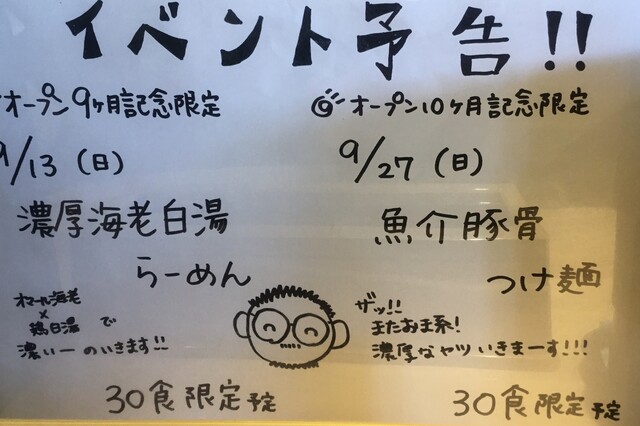 イベント予告!!
オープン9ヶ月記念限定
9/13(日)
濃厚海老白湯
らーめん
オマール海老
×
鶏白湯で
濃いーのいきます!!
30食限定予定
オープン10ヶ月記念限定
9/27(日)
魚介豚骨
つけ麺
ザッ!!
またお王系!
濃厚なヤツいきまーす!!!
30食限定予定